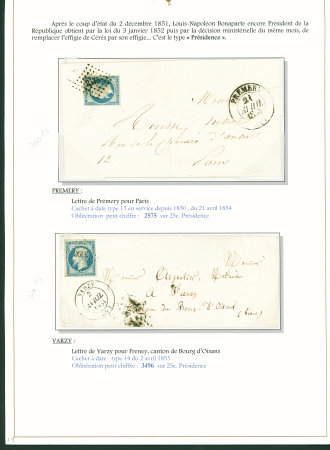 Après le coup d'état du 2 décembre 1851, Louis-Napoléon Bonaparte encore Président de la
République obtient par la loi du 3 janvier 1852 puis par la décision ministérielle du même mois,
de remplacer l'effigie de Cérès par son effigie... C'est le type « Présidence ».
PREMERY
21
AVRIL
Monsieur
12.
Paris
PREMERY :
Lettre de Prémery pour Paris
Cachet à date type 13 en service depuis 1830 , du 21 avril 1854
Oblitération petit chiffre : 2575 sur 25c. Présidence
Monsieur
Monsieur
VARZY
A
VARZY :
Lettre de Varzy pour Freney, canton de Bourg d'Oisans
Cachet à date type 14 du 2 avril 1853
Oblitération petit chiffre : 3496 sur 25c. Présidence